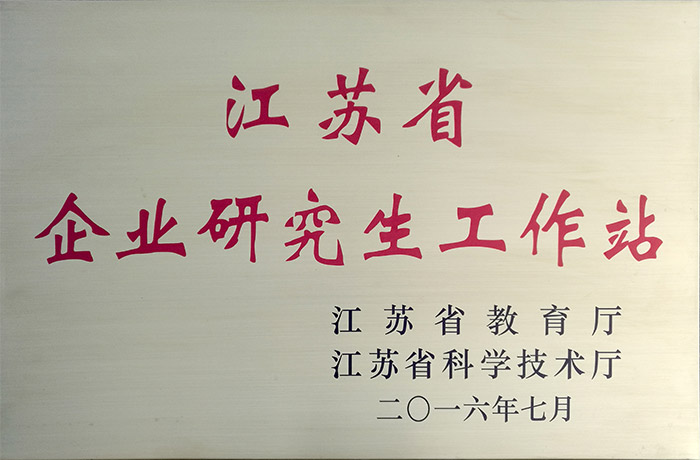 江苏省
企业研究生工作站
江苏省教育厅
江苏省科学技术厅
二〇一六年七月